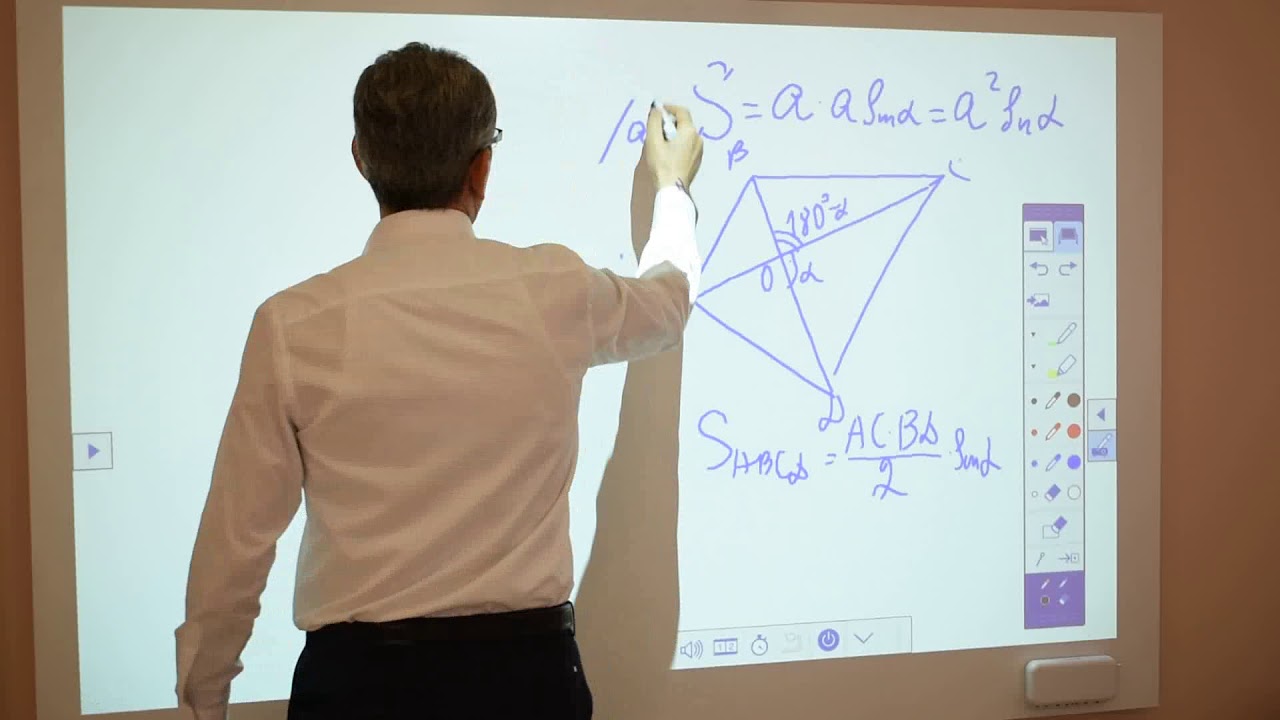 S = a · a Sin α = a² Sin α
B
C
180°-α
O α
D
S ABCD = AC·BD / 2 · Sin α
1 2